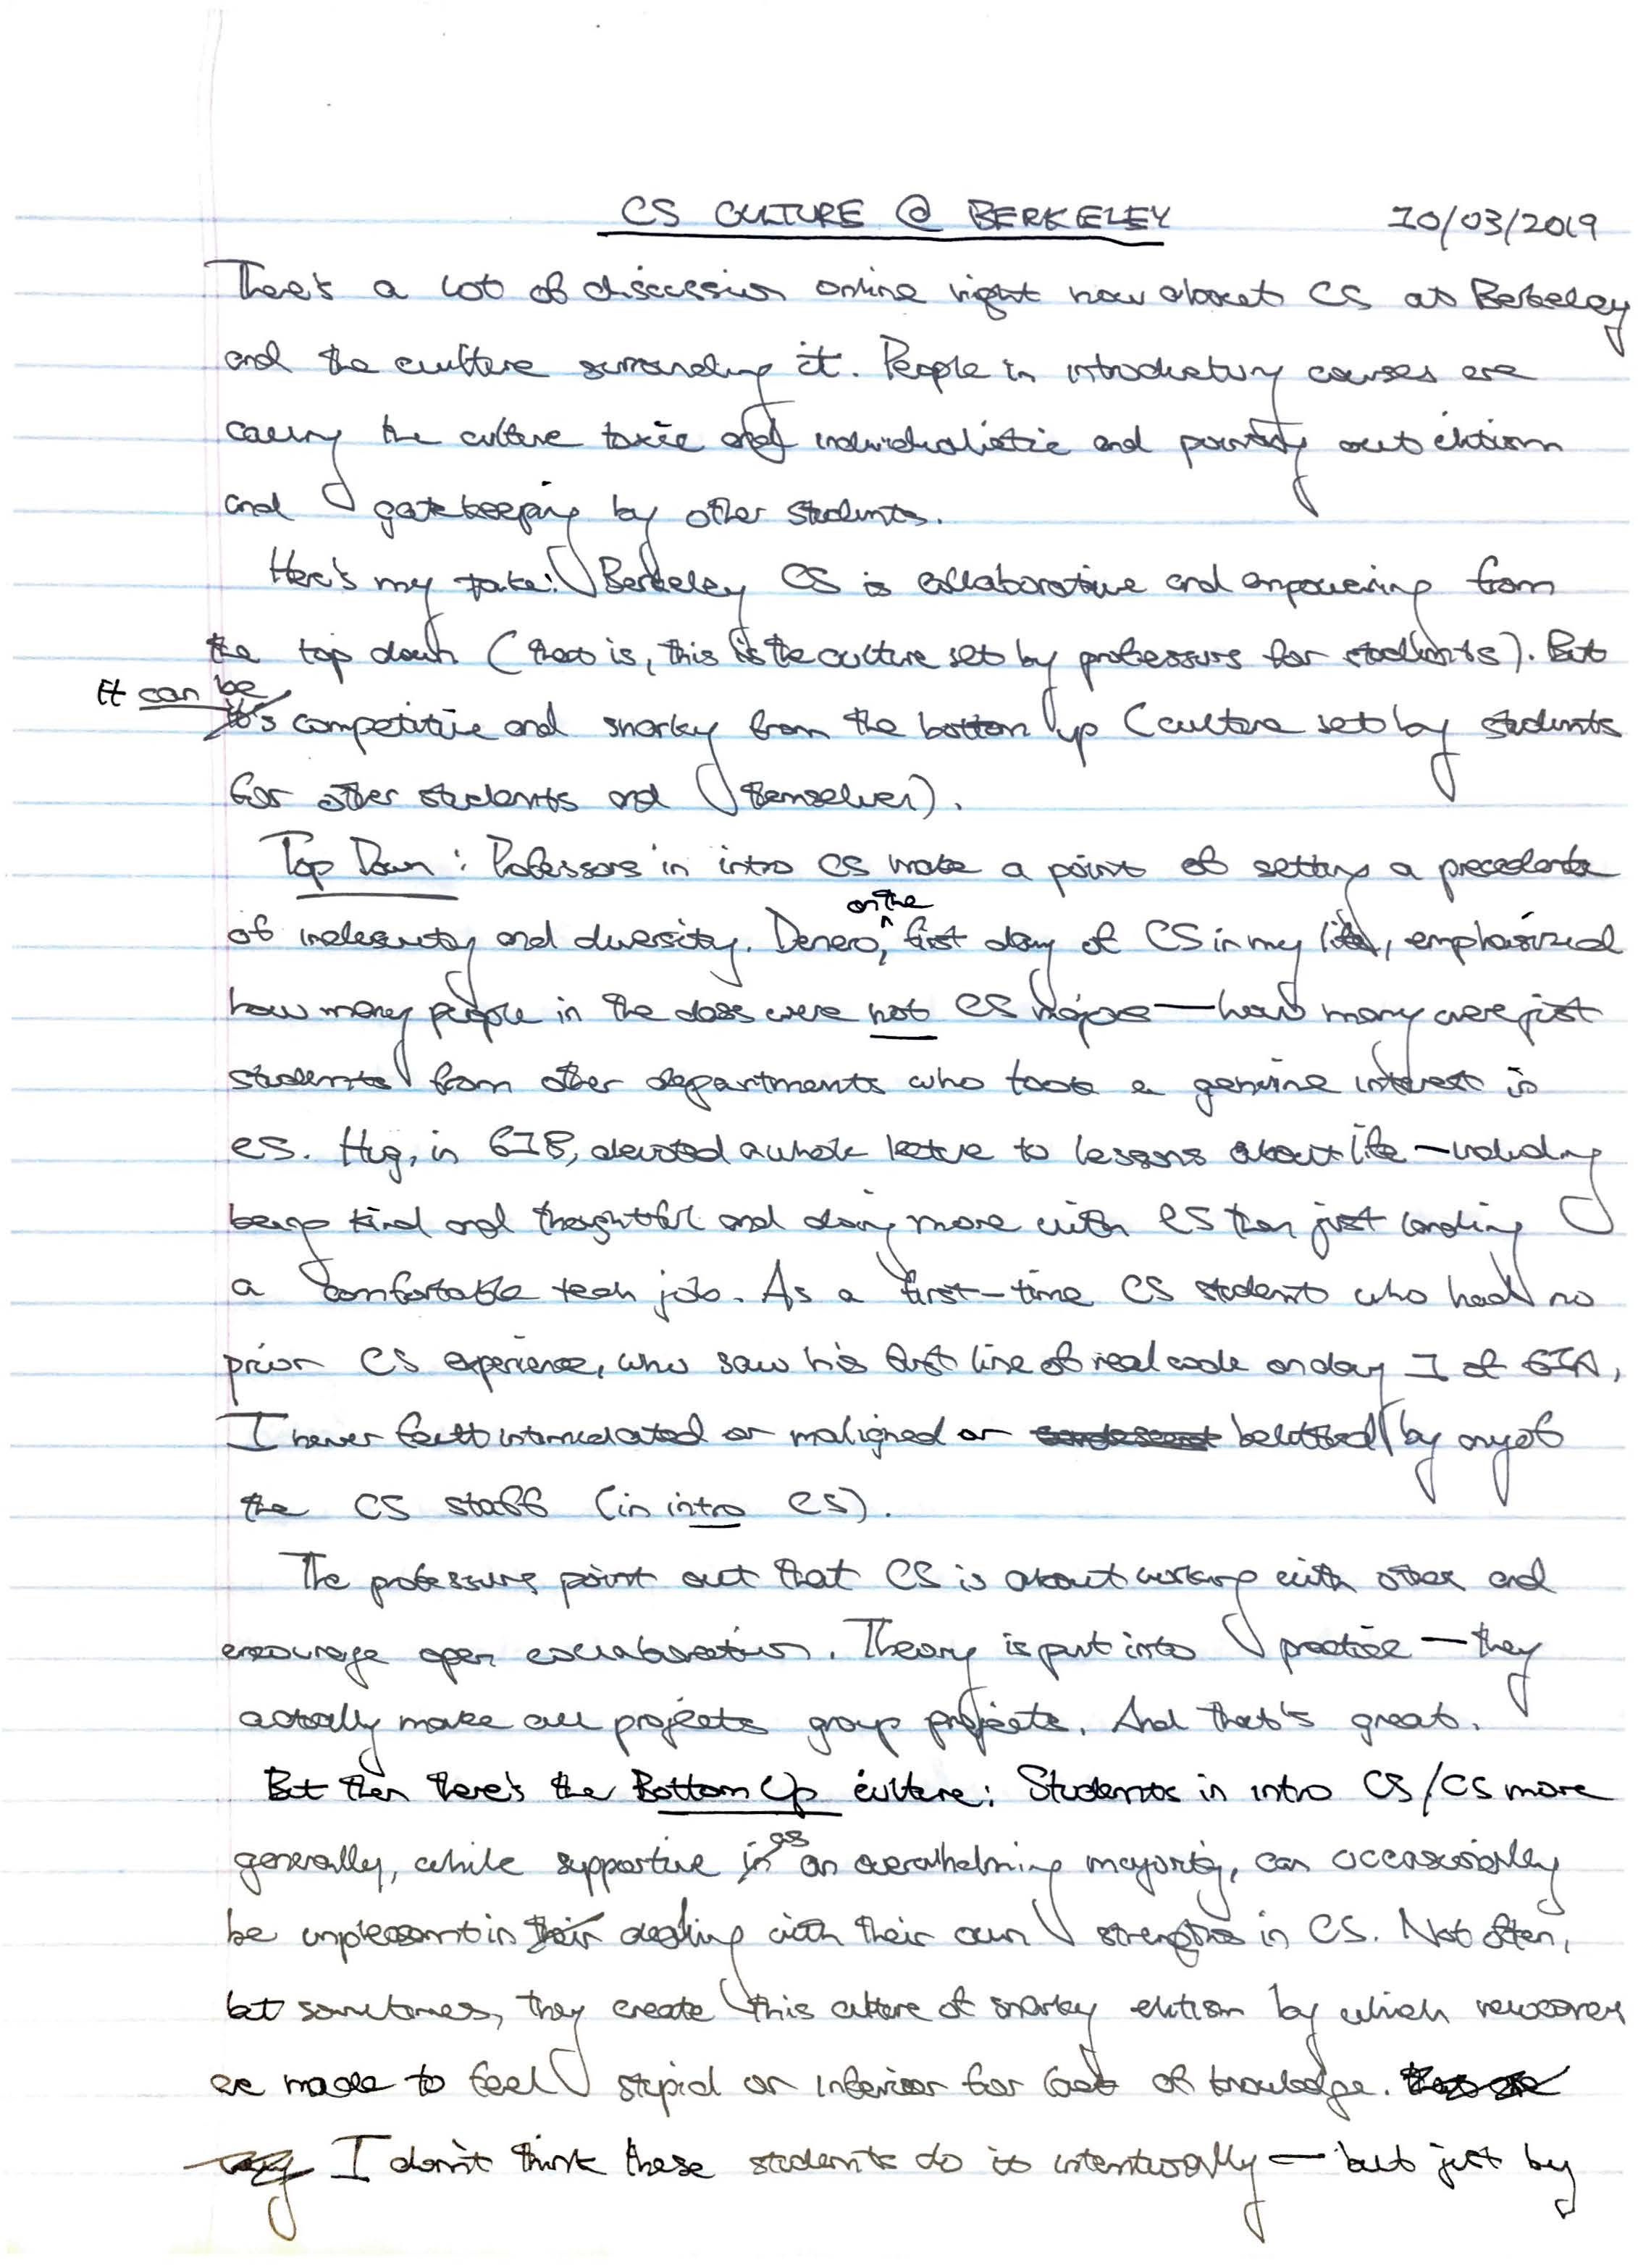 CS CULTURE @ BERKELEY 10/03/2019
There's a lot of discussion online right now about CS at Berkeley
and the culture surrounding it. People in introductory courses are
calling the culture toxic and individualistic and pointing out elitism
and gatekeeping by other students.
Here's my take: Berkeley CS is collaborative and empowering from
the top down (that is, this is the culture set by professors for students). But
It can be
it's competitive and snarky from the bottom up (culture set by students
for other students and themselves).
Top Down: Professors in intro CS make a point of setting a precedent
on the
of inclusivity and diversity. Denero, first day of CS in my life, emphasized
how many people in the class were not CS majors — how many were just
students from other departments who took a genuine interest in
CS. Hug, in 61B, devoted a whole lecture to lessons about life — including
being kind and thoughtful and doing more with CS than just landing
a comfortable tech job. As a first-time CS student who had no
prior CS experience, who saw his first line of real code on day 1 of 61A,
I never felt intimidated or maligned or belittled by any of
the CS staff (in intro CS).
The professors point out that CS is about working with other and
encourage open collaboration. Theory is put into practice — they
actually make all projects group projects. And that's great.
But then there's the Bottom Up culture: Students in intro CS/CS more
as
generally, while supportive in an overwhelming majority, can occasionally
be unpleasant in their dealing with their own strengths in CS. Not often,
but sometimes, they create this culture of snarky elitism by which newcomers
are made to feel stupid or inferior for lack of knowledge.
I don't think these students do it intentionally — but just by